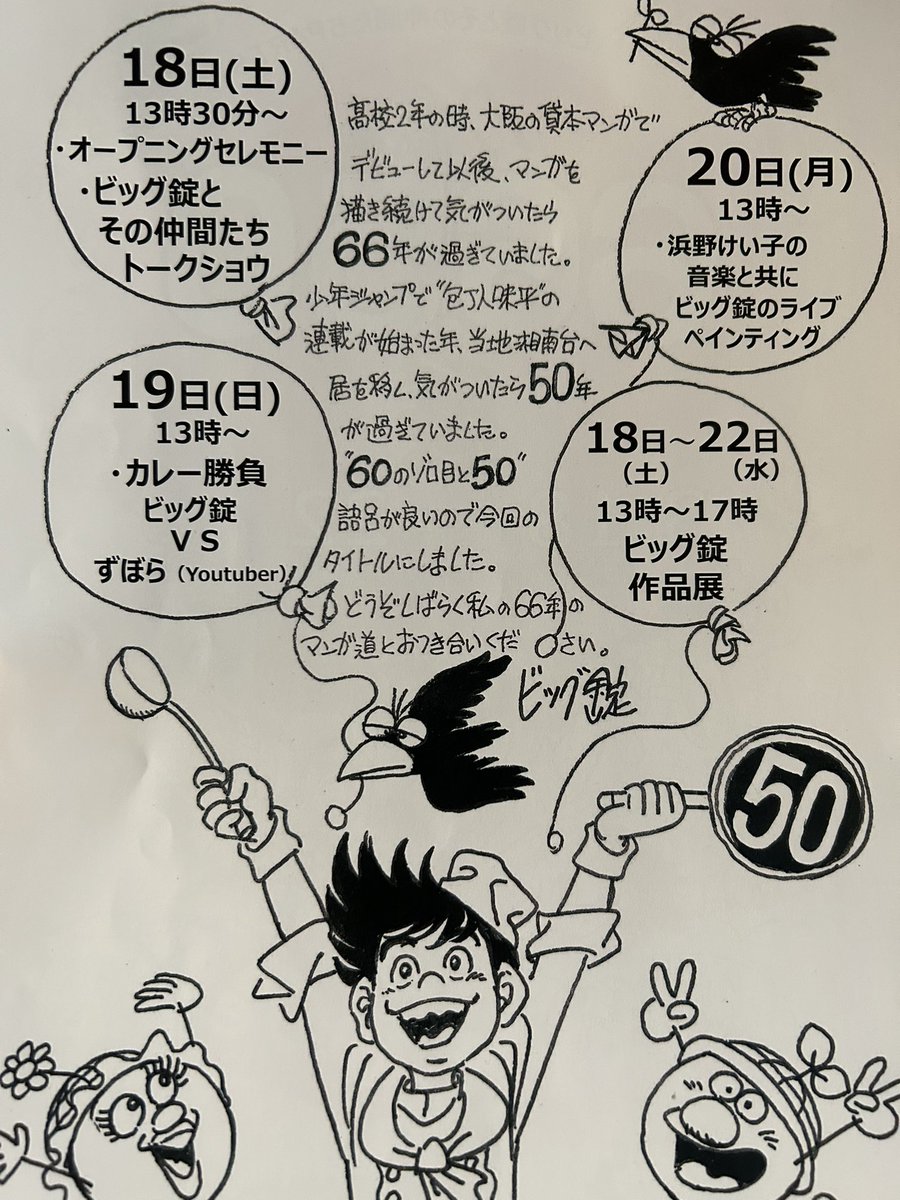 18日(土)
13時30分～
・オープニングセレモニー
・ビッグ錠と
その仲間たち
トークショウ
高校2年の時、大阪の貸本マンガで
デビューして以後、マンガを
描き続けて気がついたら
66年が過ぎていました。
少年ジャンプで"包丁人味平"の
連載が始まった年、当地湘南台へ
居を移し、気がついたら50年
が過ぎていました。
"60のゾロ目と50"
語呂が良いので今回の
タイトルにしました。
どうぞしばらく私の66年の
マンガ道とおつき合いくだ
さい。
ビッグ錠
20日(月)
13時～
・浜野けい子の
音楽と共に
ビッグ錠のライブ
ペインティング
19日(日)
13時～
・カレー勝負
ビッグ錠
VS
ずぼら（Youtuber）
18日～22日
（土）　（水）
13時～17時
ビッグ錠
作品展
50